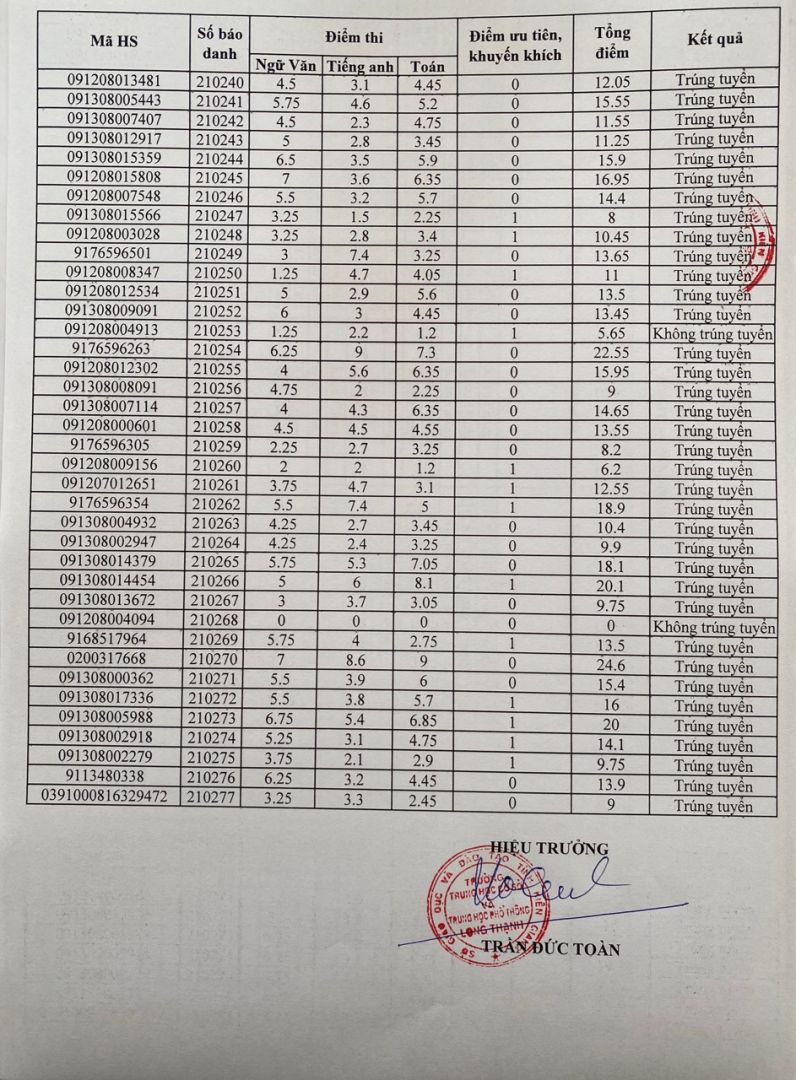 Mã HS Số báo danh Điểm thi Điểm ưu tiên, khuyến khích Tổng điểm Kết quả
Ngữ Văn Tiếng anh Toán
091208013481 210240 4.5 3.1 4.45 0 12.05 Trúng tuyển
091308005443 210241 5.75 4.6 5.2 0 15.55 Trúng tuyển
091308007407 210242 4.5 2.3 4.75 0 11.55 Trúng tuyển
091308012917 210243 5 2.8 3.45 0 11.25 Trúng tuyển
091308015359 210244 6.5 3.5 5.9 0 15.9 Trúng tuyển
091208015808 210245 7 3.6 6.35 0 16.95 Trúng tuyển
091208007548 210246 5.5 3.2 5.7 0 14.4 Trúng tuyển
091308015566 210247 3.25 1.5 2.25 1 8 Trúng tuyển
091208003028 210248 3.25 2.8 3.4 1 10.45 Trúng tuyển
9176596501 210249 3 7.4 3.25 0 13.65 Trúng tuyển
091208008347 210250 1.25 4.7 4.05 1 11 Trúng tuyển
091208012534 210251 5 2.9 5.6 0 13.5 Trúng tuyển
091308009091 210252 6 3 4.45 0 13.45 Trúng tuyển
091208004913 210253 1.25 2.2 1.2 1 5.65 Không trúng tuyển
9176596263 210254 6.25 9 7.3 0 22.55 Trúng tuyển
091208012302 210255 4 5.6 6.35 0 15.95 Trúng tuyển
091308008091 210256 4.75 2 2.25 0 9 Trúng tuyển
091308007114 210257 4 4.3 6.35 0 14.65 Trúng tuyển
091208000601 210258 4.5 4.5 4.55 0 13.55 Trúng tuyển
9176596305 210259 2.25 2.7 3.25 0 8.2 Trúng tuyển
091208009156 210260 2 2 1.2 1 6.2 Trúng tuyển
091207012651 210261 3.75 4.7 3.1 1 12.55 Trúng tuyển
9176596354 210262 5.5 7.4 5 1 18.9 Trúng tuyển
091308004932 210263 4.25 2.7 3.45 0 10.4 Trúng tuyển
091308002947 210264 4.25 2.4 3.25 0 9.9 Trúng tuyển
091308014379 210265 5.75 5.3 7.05 0 18.1 Trúng tuyển
091308014454 210266 5 6 8.1 1 20.1 Trúng tuyển
091308013672 210267 3 3.7 3.05 0 9.75 Trúng tuyển
091208004094 210268 0 0 0 0 0 Không trúng tuyển
9168517964 210269 5.75 4 2.75 1 13.5 Trúng tuyển
0200317668 210270 7 8.6 9 0 24.6 Trúng tuyển
091308000362 210271 5.5 3.9 6 0 15.4 Trúng tuyển
091308017336 210272 5.5 3.8 5.7 1 16 Trúng tuyển
091308005988 210273 6.75 5.4 6.85 1 20 Trúng tuyển
091308002918 210274 5.25 3.1 4.75 1 14.1 Trúng tuyển
091308002279 210275 3.75 2.1 2.9 1 9.75 Trúng tuyển
9113480338 210276 6.25 3.2 4.45 0 13.9 Trúng tuyển
0391000816329472 210277 3.25 3.3 2.45 0 9 Trúng tuyển
HIỆU TRƯỞNG
SỞ GIÁO DỤC VÀ ĐÀO TẠO TỈNH KIÊN GIANG
TRƯỜNG
TRUNG HỌC CƠ SỞ
VÀ
TRUNG HỌC PHỔ THÔNG
LONG THẠNH
TRẦN ĐỨC TOÀN